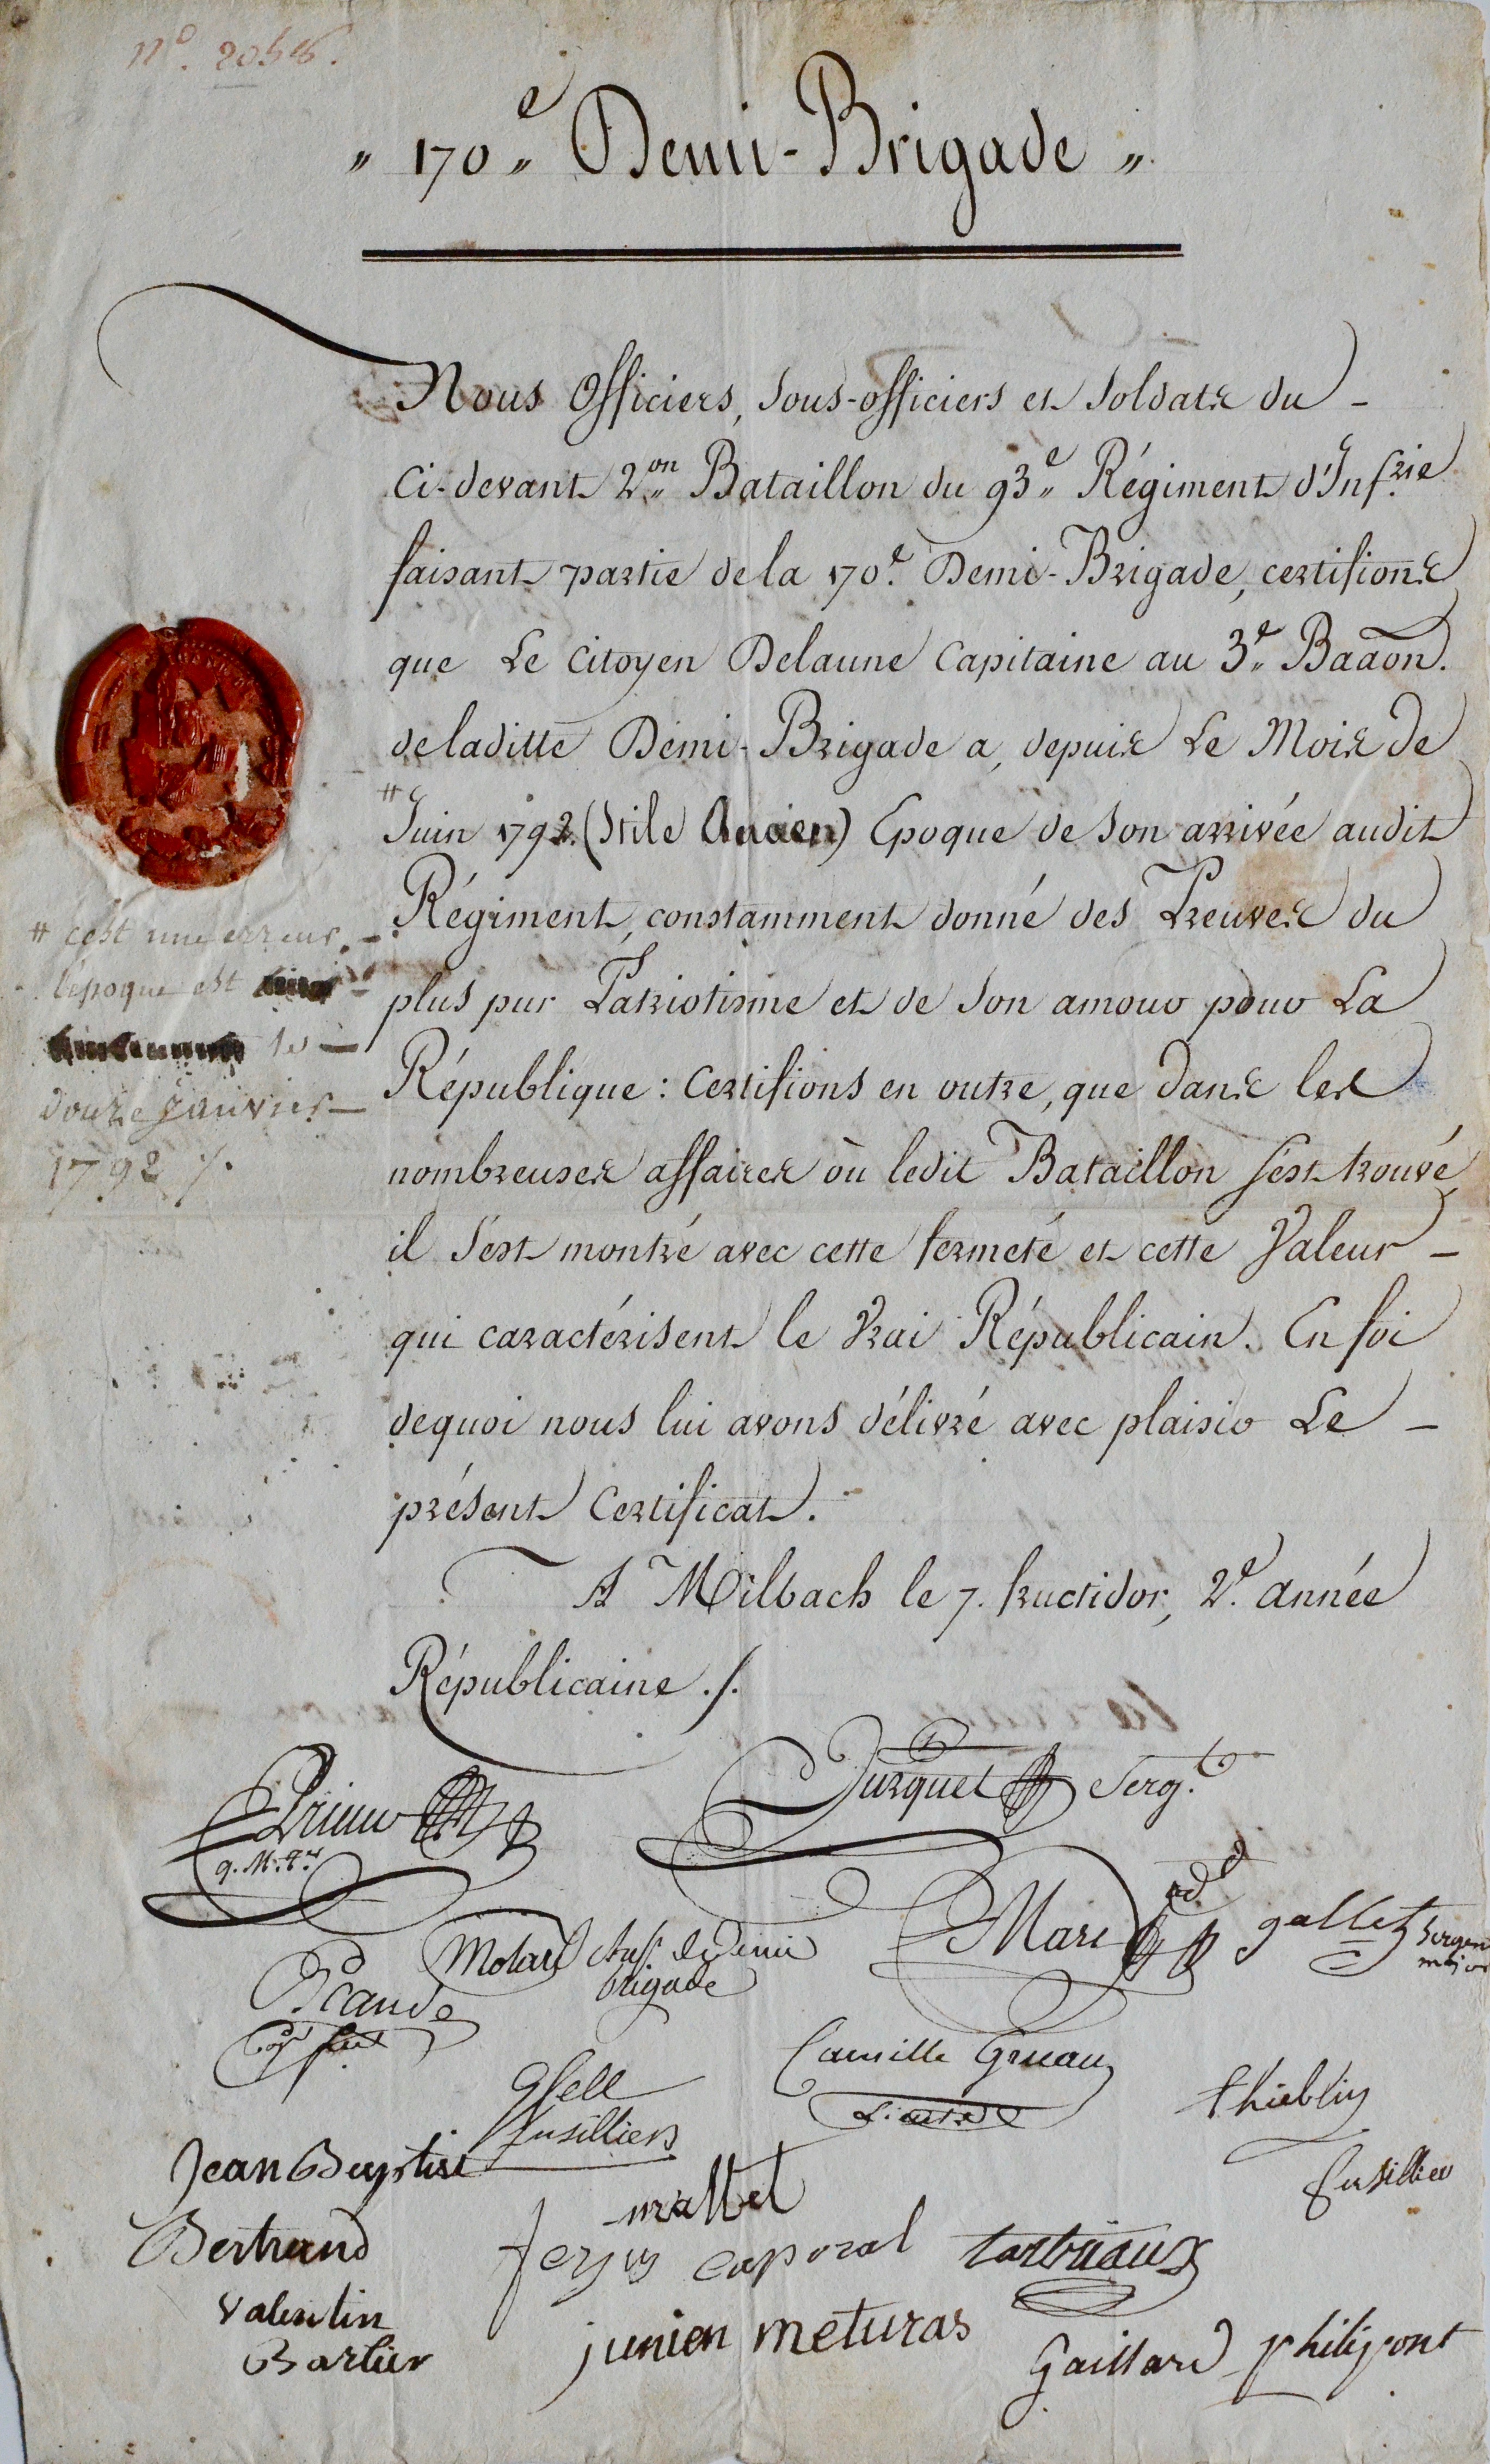 N.º 2056.
„ 170.e Demi-Brigade „
Nous Officiers, Sous-officiers et Soldats du -
Ci-devant 2.on Bataillon du 93.e Régiment d'Inf.rie
faisant partie de la 170.e Demi-Brigade, certifions
que Le Citoyen Delaune Capitaine au 3.e Baaon.
de laditte Demi-Brigade a, depuis Le Mois de
# Juin 1792. (Stile Ancien) Epoque de Son arrivée audit
Régiment, constamment donné des Preuves du
plus pur Patriotisme et de Son amour pour La
République : Certifions en outre, que dans les
nombreuses affaires où ledit Bataillon s'est trouvé
il S'est montré avec cette fermeté et cette Valeur -
qui caractérisent le Vrai Républicain. En foi
dequoi nous lui avons délivré avec plaisir Le -
présent Certificat.
A Milbach le 7. fructidor, 2.e année
Républicaine ./.
# c'est une erreur. -
l'époque est
le -
douze Janvier -
1792 ./.
Prieur
q. M.tre
Jurquet Serg.t
Motard chef de demi
brigade
Mare
ad.
gallet Sergen
major
Gsell
fusilliers
Camille Gruau
thieblin
fusillier
Jean Baptiste
Bertrand
mallet
caporal
Valentin
Barlier
junien meturas
Gaillard philipont